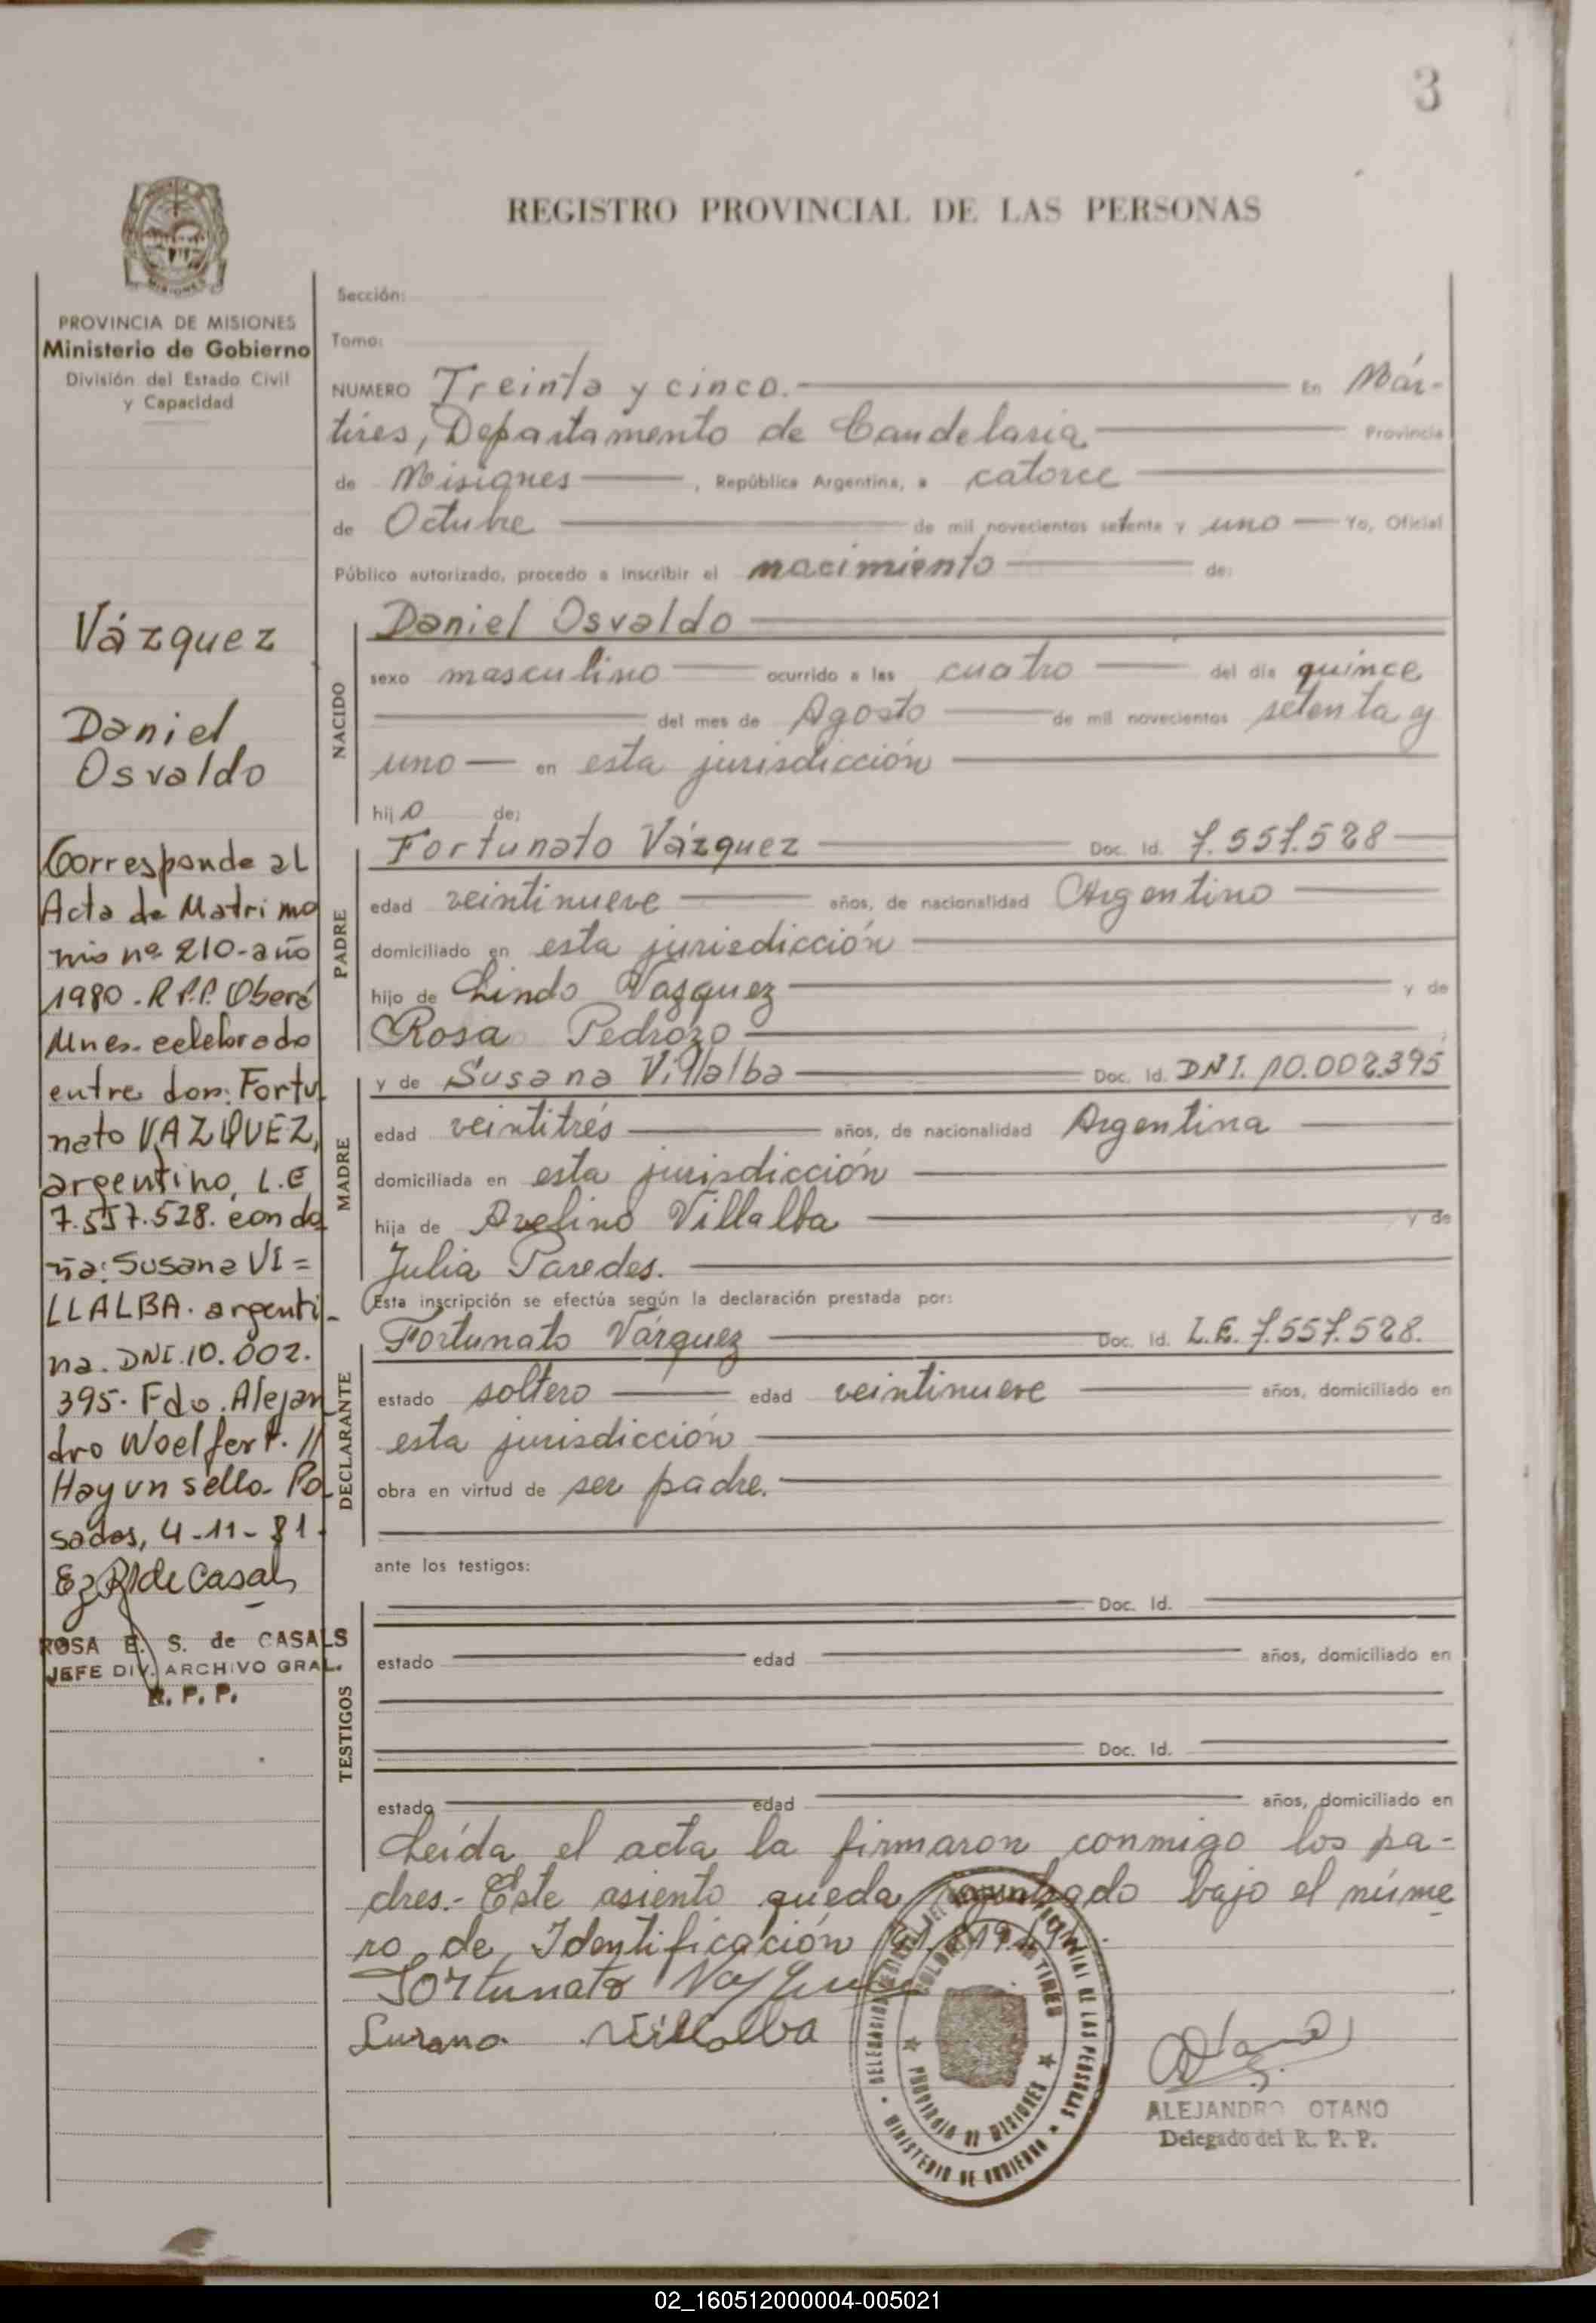 3
REGISTRO PROVINCIAL DE LAS PERSONAS
PROVINCIA DE MISIONES
Ministerio de Gobierno
División del Estado Civil
y Capacidad
Vázquez
Daniel
Osvaldo
Corresponde al
Acta de Matrimo
nio nº 210-año
1980. R.P.P. Oberá
Mnes. celebrado
entre don: Fortu
nato VAZQUEZ,
argentino, L.E
7.557.528. con do
ña: Susana VI=
LLALBA. argenti-
na. DNI.10.002.
395. Fdo. Alejan
dro Woelfert. //
Hay un sello. Po
sadas, 4-11-81.
de Casals
ROSA E. S. de CASALS
JEFE DIV. ARCHIVO GRAL.
R. P. P.
Sección:
Tomo:
NUMERO Treinta y cinco. En Már-
tires, Departamento de Candelaria Provincia
de Misiones, República Argentina, a catorce
de Octubre de mil novecientos setenta y uno Yo, Oficial
Público autorizado, procedo a inscribir el nacimiento de:
NACIDO
Daniel Osvaldo
sexo masculino ocurrido a las cuatro del día quince
del mes de Agosto de mil novecientos setenta y
uno en esta jurisdicción
hijo de:
PADRE
Fortunato Vázquez Doc. Id. 7.557.528
edad veintinueve años, de nacionalidad Argentino
domiciliado en esta jurisdicción
hijo de Lindo Vazquez y de
Rosa Pedrozo
MADRE
y de Susana Villalba Doc. Id. DNI. 10.002.395
edad veintitrés años, de nacionalidad Argentina
domiciliada en esta jurisdicción
hija de Avelino Villalba y de
Julia Paredes.
Esta inscripción se efectúa según la declaración prestada por:
DECLARANTE
Fortunato Vázquez Doc. Id. L.E. 7.557.528.
estado soltero edad veintinueve años, domiciliado en
esta jurisdicción
obra en virtud de ser padre.
ante los testigos:
TESTIGOS
Doc. Id.
estado edad años, domiciliado en
Doc. Id.
estado edad años, domiciliado en
Leída el acta la firmaron conmigo los pa-
dres.- Este asiento queda bajo el núme
ro de Identificación
Fortunato Vazquez
Susana Villalba
MINISTERIO DE GOBIERNO
PROVINCIA DE MISIONES
Otano
ALEJANDRO OTANO
Delegado del R. P. P.
02_160512000004-005021